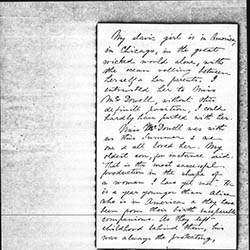 My slavic girl is in America,
in Chicago, in the great
wicked world alone, with
the ocean rolling between
herself & her parents. I
entrusted her to Miss
McDowell, without this
definite position, I could
hardly have parted with her.
Miss McDowell was with
us this Summer &
one & all loved her. My
oldest son, for instance said:
That is the most successful
production in the shape of
a woman I have yet met. He
is a year younger than Alice
who is in America & they have
been from their birth inseparable
companions. As they left
childhood behind them, he
was always the protecting,